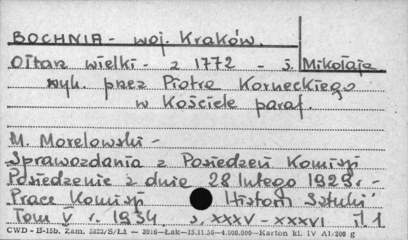 BOCHNIA - woj. Kraków.
Ołtarz wielki - z 1772 - ś. Mikołaja
wyk. przez Piotra Korneckiego
w Kościele paraf.
M. Morelowski -
Sprawozdania z Posiedzeń Komisji
Posiedzenie z dnia 28 lutego 1929 r. -
Prace Komisji Historii Sztuki
Tom V r. 1934 s. XXXV - XXXVI il 1
CWD - B-15b. Zam. 5823/S/Lż — 2016—Łak—15.11.56—4.000.000—Karton kl. IV A1/200 g